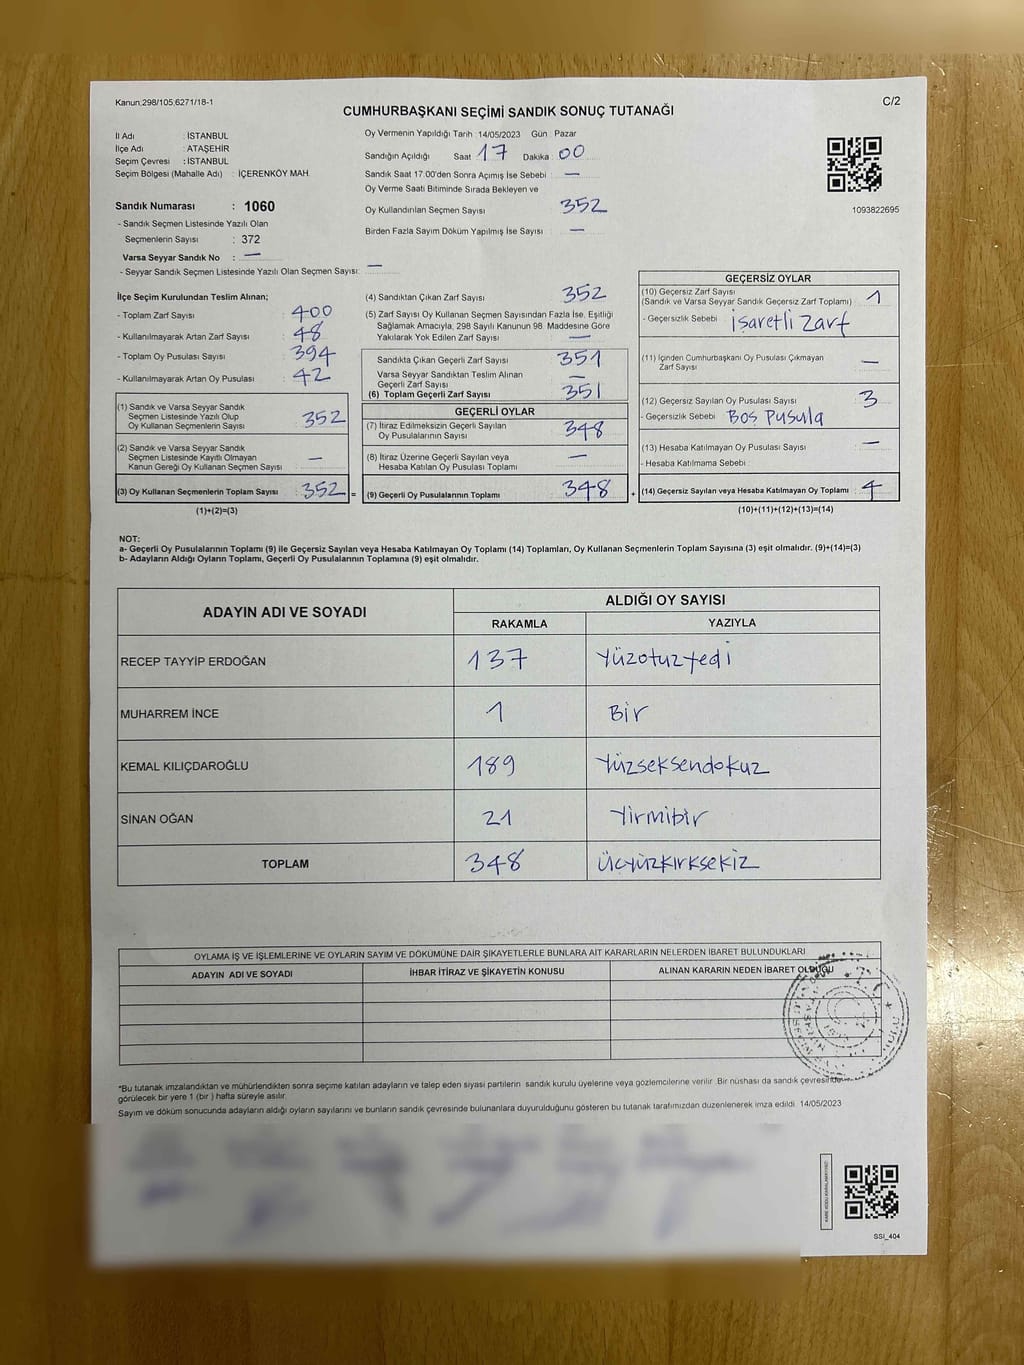 Kanun;298/105;6271/18-1
C/2
CUMHURBAŞKANI SEÇİMİ SANDIK SONUÇ TUTANAĞI
İl Adı : İSTANBUL
İlçe Adı : ATAŞEHİR
Seçim Çevresi : İSTANBUL
Seçim Bölgesi (Mahalle Adı) : İÇERENKÖY MAH.
Sandık Numarası : 1060
- Sandık Seçmen Listesinde Yazılı Olan
Seçmenlerin Sayısı : 372
Varsa Seyyar Sandık No : —
- Seyyar Sandık Seçmen Listesinde Yazılı Olan Seçmen Sayısı: —
Oy Vermenin Yapıldığı Tarih 14/05/2023 Gün Pazar
Sandığın Açıldığı Saat 17 Dakika 00
Sandık Saat 17.00'den Sonra Açımış İse Sebebi : —
Oy Verme Saati Bitiminde Sırada Bekleyen ve
Oy Kullandırılan Seçmen Sayısı 352
Birden Fazla Sayım Döküm Yapılmış İse Sayısı : —
1093822695
İlçe Seçim Kurulundan Teslim Alınan;
- Toplam Zarf Sayısı : 400
- Kullanılmayarak Artan Zarf Sayısı : 48
- Toplam Oy Pusulası Sayısı : 394
- Kullanılmayarak Artan Oy Pusulası : 42
(1) Sandık ve Varsa Seyyar Sandık
Seçmen Listesinde Yazılı Olup
Oy Kullanan Seçmenlerin Sayısı : 352
(2) Sandık ve Varsa Seyyar Sandık
Seçmen Listesinde Kayıtlı Olmayan
Kanun Gereği Oy Kullanan Seçmen Sayısı : —
(3) Oy Kullanan Seçmenlerin Toplam Sayısı : 352 =
(1)+(2)=(3)
(4) Sandıktan Çıkan Zarf Sayısı : 352
(5) Zarf Sayısı Oy Kullanan Seçmen Sayısından Fazla İse, Eşitliği
Sağlamak Amacıyla, 298 Sayılı Kanunun 98. Maddesine Göre
Yakılarak Yok Edilen Zarf Sayısı : —
Sandıkta Çıkan Geçerli Zarf Sayısı : 351
Varsa Seyyar Sandıktan Teslim Alınan
Geçerli Zarf Sayısı : —
(6) Toplam Geçerli Zarf Sayısı : 351
GEÇERLİ OYLAR
(7) İtiraz Edilmeksizin Geçerli Sayılan
Oy Pusulalarının Sayısı : 348
(8) İtiraz Üzerine Geçerli Sayılan veya
Hesaba Katılan Oy Pusulası Toplamı : —
(9) Geçerli Oy Pusulalarının Toplamı : 348 +
GEÇERSİZ OYLAR
(10) Geçersiz Zarf Sayısı
(Sandık ve Varsa Seyyar Sandık Geçersiz Zarf Toplamı) : 1
- Geçersizlik Sebebi : işaretli Zarf
(11) İçinden Cumhurbaşkanı Oy Pusulası Çıkmayan
Zarf Sayısı : —
(12) Geçersiz Sayılan Oy Pusulası Sayısı : 3
- Geçersizlik Sebebi : Boş Pusula
(13) Hesaba Katılmayan Oy Pusulası Sayısı : —
- Hesaba Katılmama Sebebi :
(14) Geçersiz Sayılan veya Hesaba Katılmayan Oy Toplamı : 4
(10)+(11)+(12)+(13)=(14)
NOT:
a- Geçerli Oy Pusulalarının Toplamı (9) ile Geçersiz Sayılan veya Hesaba Katılmayan Oy Toplamı (14) Toplamları, Oy Kullanan Seçmenlerin Toplam Sayısına (3) eşit olmalıdır. (9)+(14)=(3)
b- Adayların Aldığı Oyların Toplamı, Geçerli Oy Pusulalarının Toplamına (9) eşit olmalıdır.
ADAYIN ADI VE SOYADI
ALDIĞI OY SAYISI
RAKAMLA YAZIYLA
RECEP TAYYİP ERDOĞAN 137 Yüzotuzyedi
MUHARREM İNCE 1 Bir
KEMAL KILIÇDAROĞLU 189 Yüzseksendokuz
SİNAN OĞAN 21 Yirmibir
TOPLAM 348 Üçyüzkırksekiz
OYLAMA İŞ VE İŞLEMLERİNE VE OYLARIN SAYIM VE DÖKÜMÜNE DAİR ŞİKAYETLERLE BUNLARA AİT KARARLARIN NELERDEN İBARET BULUNDUKLARI
ADAYIN ADI VE SOYADI İHBAR İTİRAZ VE ŞİKAYETİN KONUSU ALINAN KARARIN NEDEN İBARET OLDUĞU
*Bu tutanak imzalandıktan ve mühürlendikten sonra seçime katılan adayların ve talep eden siyasi partilerin sandık kurulu üyelerine veya gözlemcilerine verilir. Bir nüshası da sandık çevresinde
görülecek bir yere 1 (bir) hafta süreyle asılır.
Sayım ve döküm sonucunda adayların aldığı oyların sayılarını ve bunların sandık çevresinde bulunanlara duyurulduğunu gösteren bu tutanak tarafımızdan düzenlenerek imza edildi. 14/05/2023
SSI_404